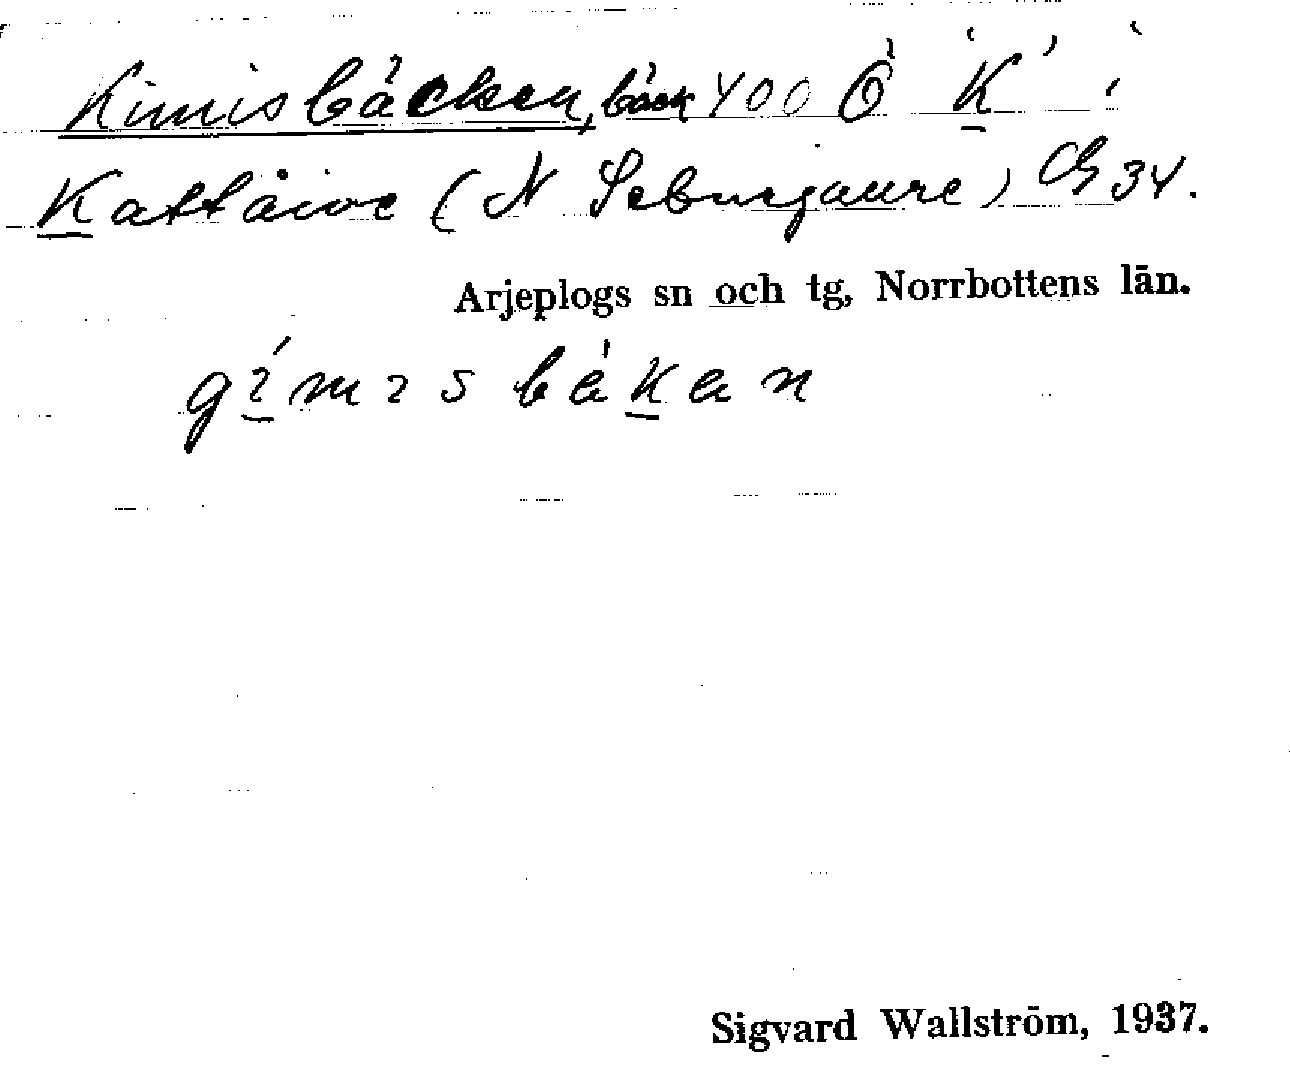 Kimisbäcken, bäck 400 Ö K i
Kattåive (N Seburgaure) Gb 34.
Arjeplogs sn och tg, Norrbottens län.
gímıs bäkan
Sigvard Wallström, 1937.